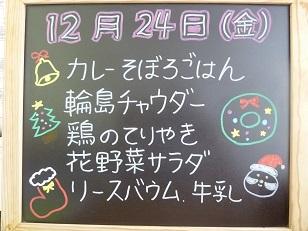 12月24日(金)
カレーそぼろごはん
輪島チャウダー
鶏のてりやき
花野菜サラダ
リースバウム.牛乳